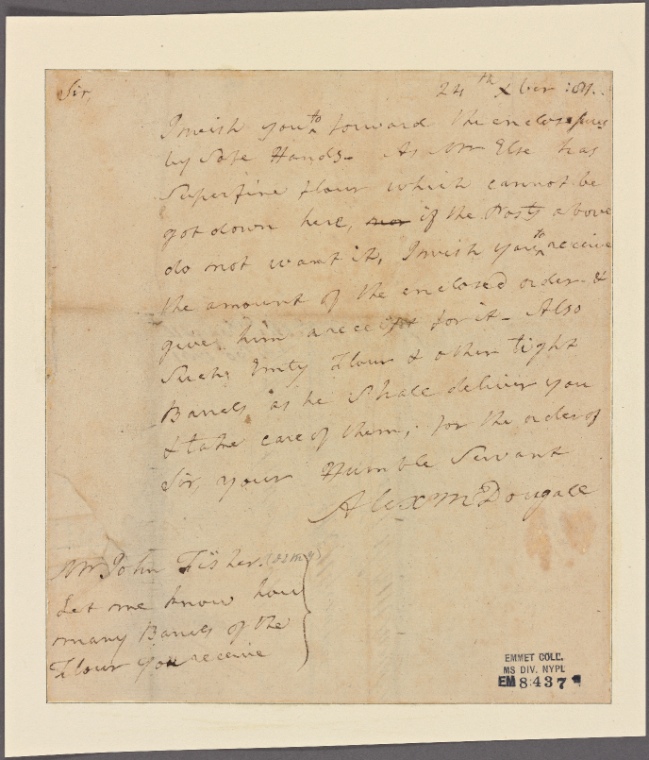 Sir,
24th Xber :811..
I wish you to forward the enclos
by Safe Hands. As Mr Else has
Superfine flour which cannot be
got down here, if the Posts above
do not want it, I wish you to receive
the amount of the enclosed order. &
give him a receipt for it - Also
Such Emty Flour & other tight
Barrels as he Shall deliver you
& take care of them, for the order of
Sir, your Humble Servant
Alex McDougall
Mr John Fisher.
Let me know how
many Barrels of the
Flour you receive
EMMET COLL.
MS DIV. NYPL
EM 8437